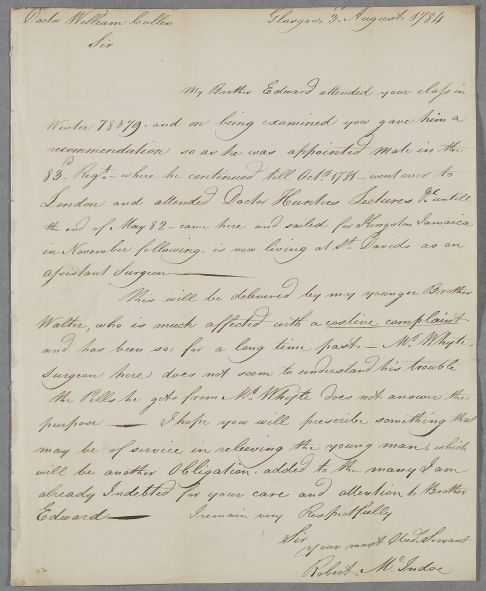 Doctor William Cullen
Glasgow, 3d. August, 1784
Sir
My Brother Edward attended your class in
Winter 78 & 79, and on being examined you gave him a
recommendation so as he was appointed Mate in the
83d. Regt. - where he continued till Octr. 1781 - went over to
London and attended Doctor Hunters Lectures &c untill
the end of May 82 - came here and sailed for Kingston, Jamaica
in November following, is now living at St. Davids as an
assistant Surgeon
This will be delivered by my younger Brother
Walter, who is much affected with a costive complaint
and has been so, for a long time past - Mr. Whyte,
Surgeon here does not seem to understand his trouble
the Pills he gets from Mr. Whyte does not answer the
purpose - I hope you will prescribe something that
may be of service in releeving the young man, which
will be another Obligation, added to the many I am
already Indebted for your care and attention to Brother
Edward - I remain very Respectfully
Sir
your most Obedt. Servant
Robert McIndoe